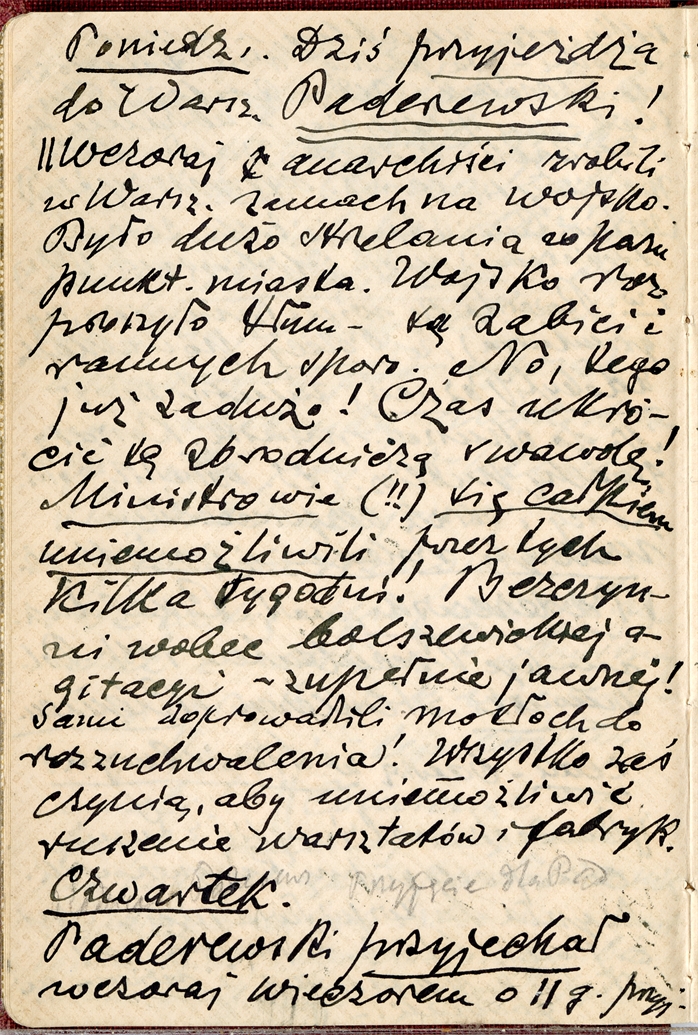 Poniedz. Dziś przyjeżdża
do Warsz. Paderewski!
Wczoraj anarchiści zrobili
w Warsz. zamach na wojsko.
Było dużo strzelania w paru
punkt. miasta. Wojsko roz
proszyło tłum - są zabici i
rannych sporo. No, tego
już zadużo! Czas ukró-
cić tą zbrodniczą swawolę!
Ministrowie (!!) się całkiem
uniemożliwili przez tych
kilka tygodni! Bezczyn-
ni wobec bolszewickiej a-
gitacyi - zupełnie jawnej!
Sami doprowadzili motłoch do
rozzuchwalenia! Wszystko zaś
czynią, aby uniemożliwić
ruszenie warsztatów i fabryk.
Przyjęcie dla Pad
Czwartek.
Paderewski przyjechał
wczoraj wieczorem o 11 g. przyj-